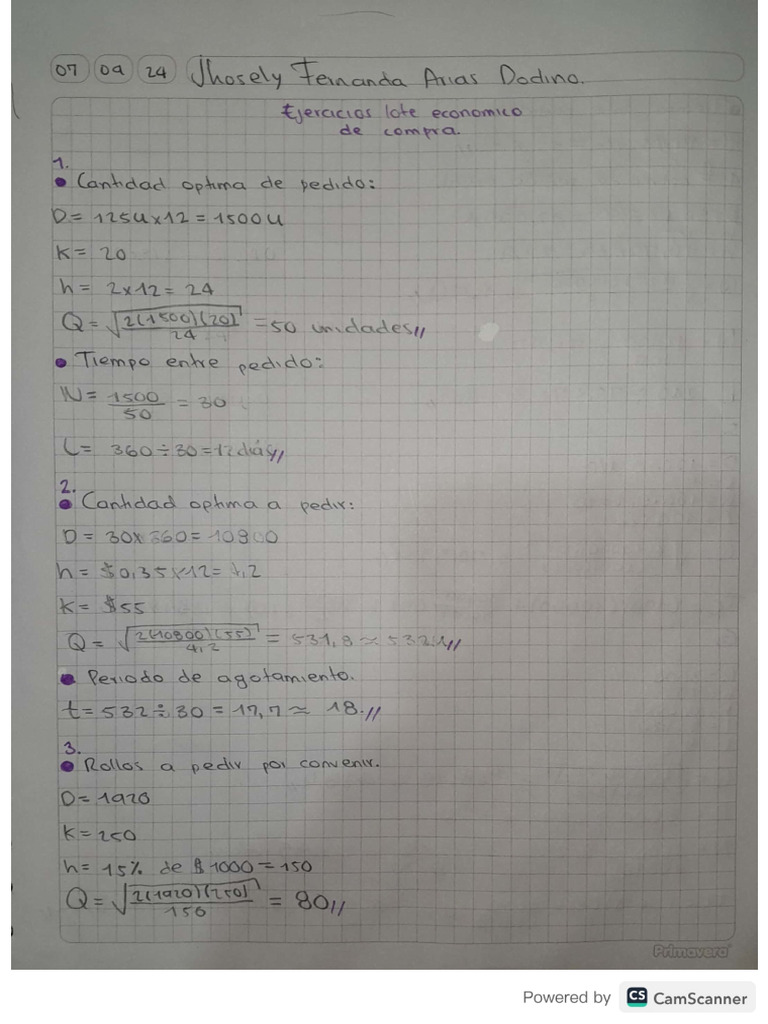 07 09 24 Jhosely Fernanda Arias Dodino.
Ejercicios lote economico
de compra.
1.
• Cantidad optima de pedido:
D= 125u×12 = 1500u
K= 20
h= 2×12= 24
Q= √2(1500)(20)/24 = 50 unidades//
• Tiempo entre pedido:
N= 1500/50 = 30
L= 360÷30=12 diás//
2.
• Cantidad optima a pedir:
D= 30×360= 10800
h= $0,35×12= 4,2
K= $55
Q= √2(10800)(55)/4,2 = 531,8 ≈ 532u//
• Periodo de agotamiento.
t= 532÷30 = 17,7 ≈ 18.//
3.
• Rollos a pedir por convenir.
D= 1920
K= 250
h= 15% de $1000 = 150
Q= √2(1920)(250)/150 = 80//
Primavera
Powered by CS CamScanner